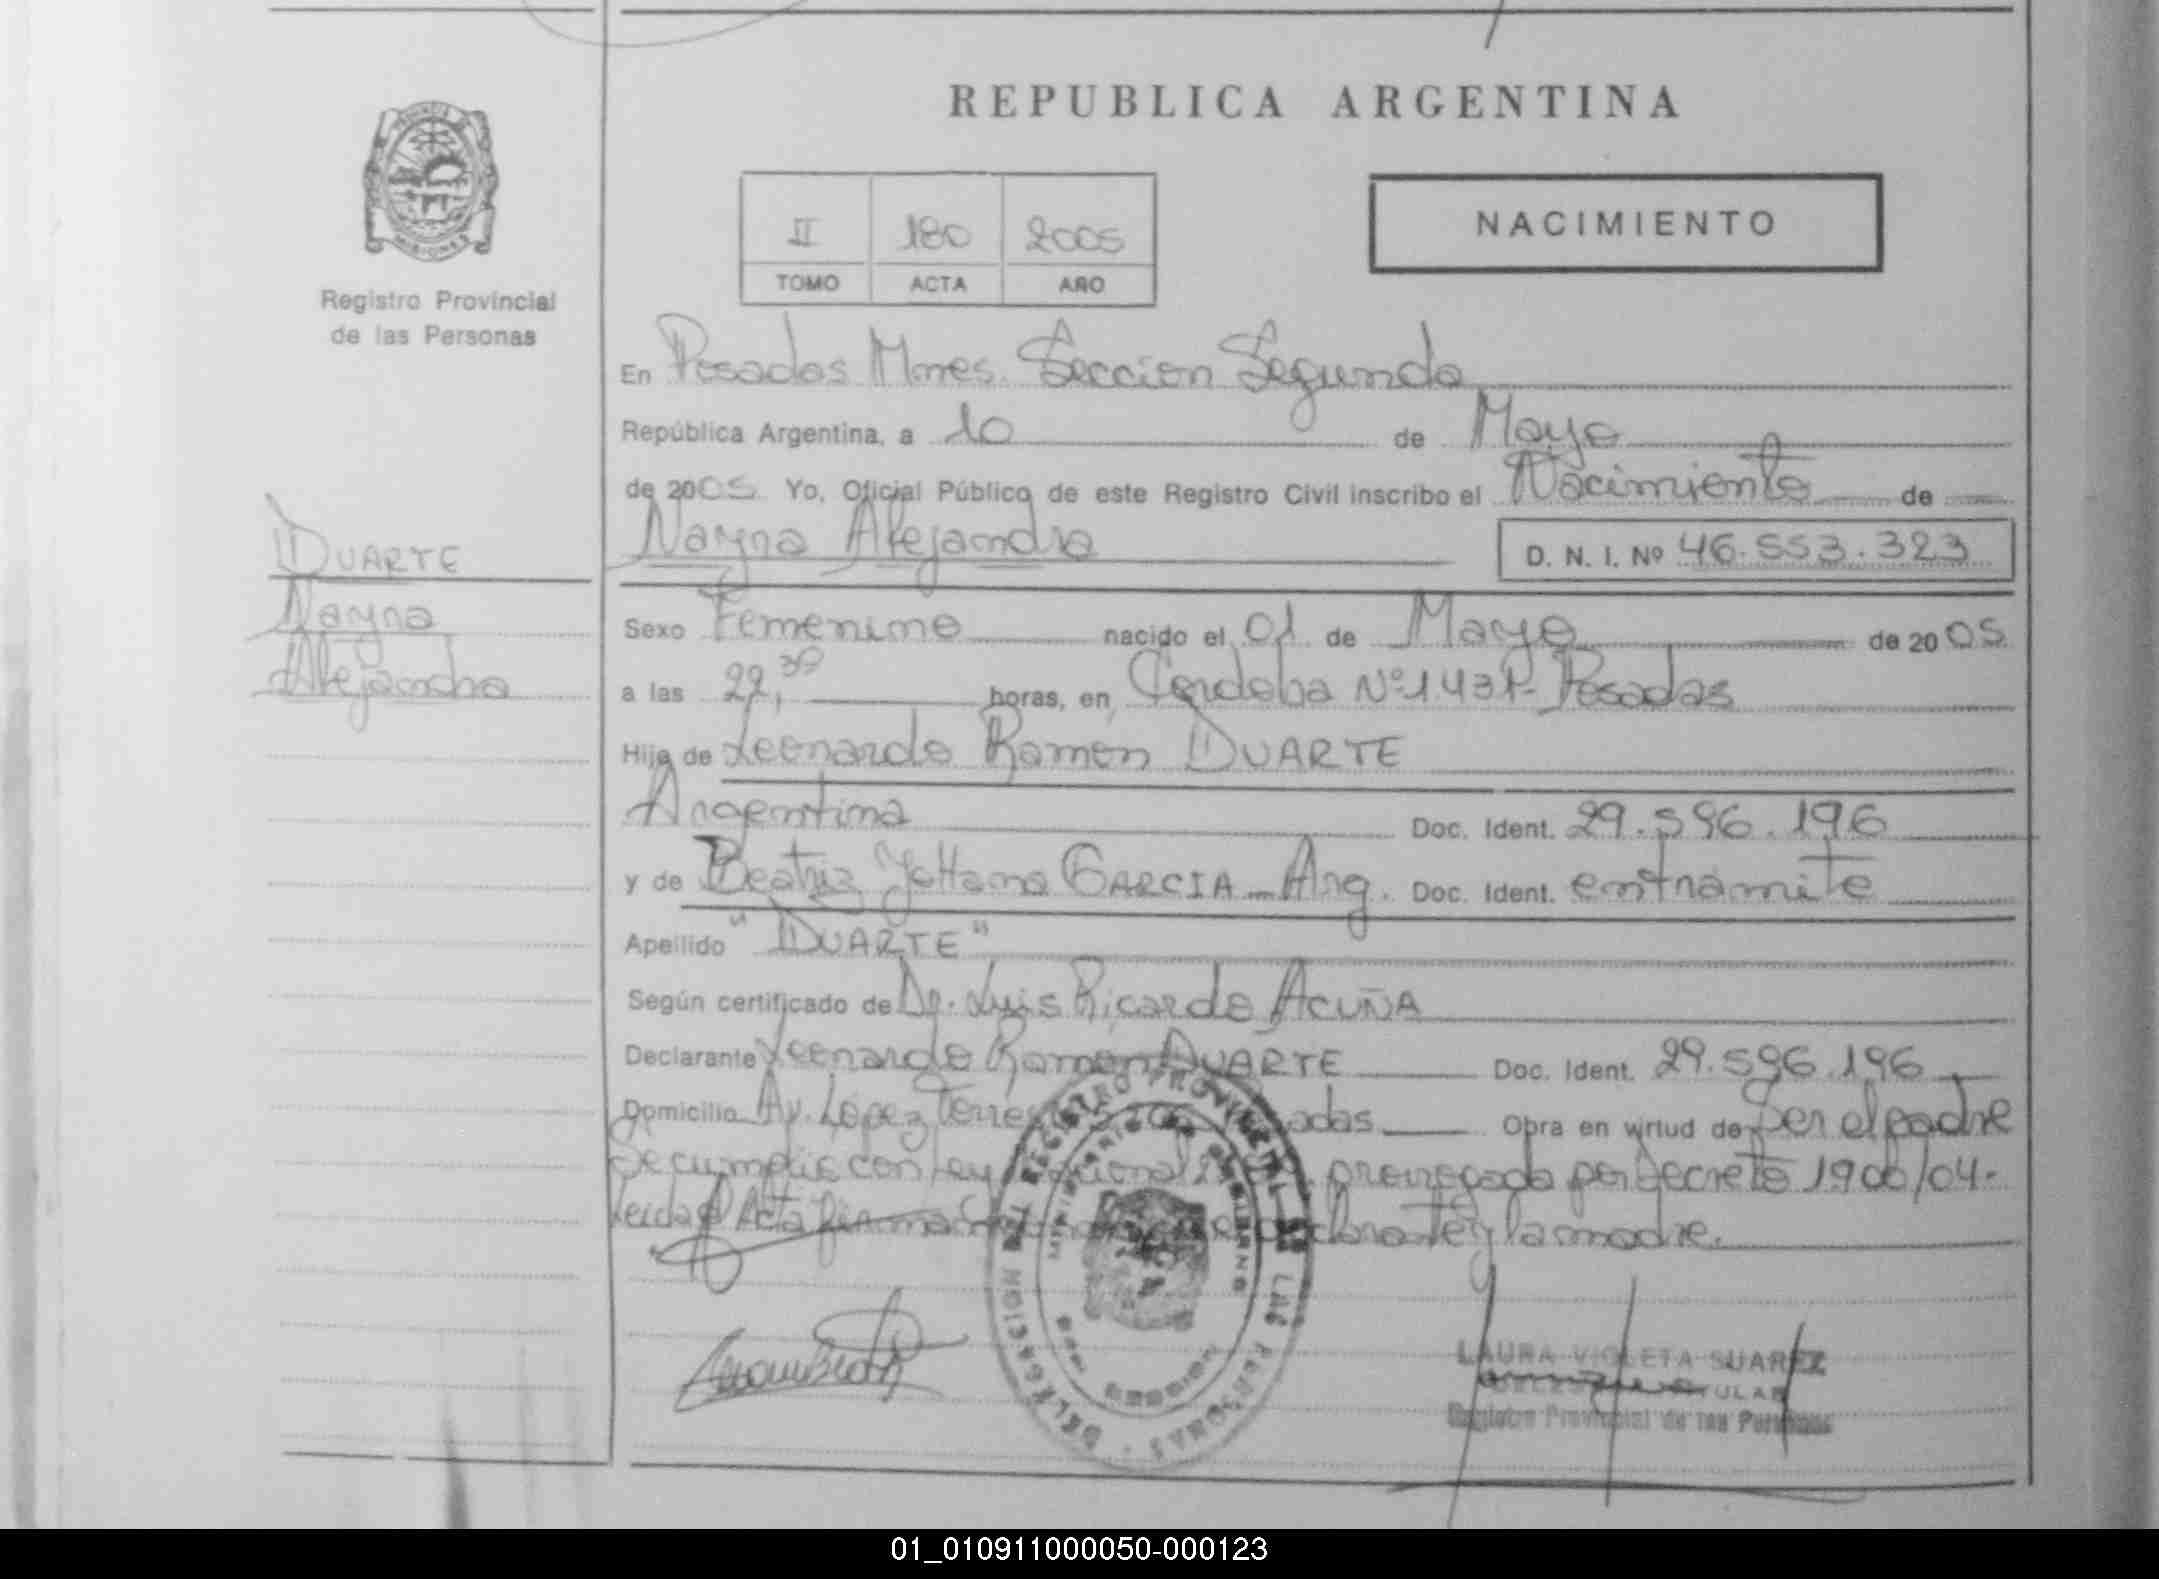 REPUBLICA ARGENTINA
PROVINCIA DE
MISIONES
Registro Provincial
de las Personas
II 180 2005
TOMO ACTA AÑO
NACIMIENTO
En Posadas Mnes. Seccion Segunda
República Argentina, a 10 de Mayo
de 2005 Yo, Oficial Público de este Registro Civil inscribo el Nacimiento de
Nayna Alejandra
D. N. I. Nº 46.553.323
DUARTE
Nayna
Alejandra
Sexo Femenino nacido el 01 de Mayo de 2005
a las 22,30 horas, en Cordoba Nº Posadas
Hija de Leonardo Ramon DUARTE
Argentina Doc. Ident. 29.596.196
y de Beatriz GARCIA - Arg. Doc. Ident. en tramite
Apellido "DUARTE"
Según certificado de Dr. Luis Ricardo ACUÑA
Declarante Leonardo Ramon DUARTE Doc. Ident. 29.596.196
Domicilio Av. López Torres Obra en virtud de ser el padre
Se cumplio con Ley prorrogada por Decreto 1900/04.
Leida el Acta y la madre.
DELEGACION DEL REGISTRO PROVINCIAL DE LAS PERSONAS
MINISTERIO DE GOBIERNO
MISIONES
LAURA VIOLETA SUAREZ
TITULAR
Registro Provincial de las Personas
01_010911000050-000123